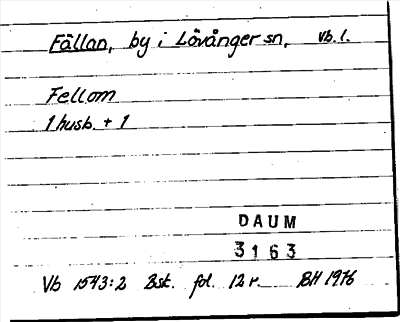 Fällan, by i Lövånger sn, Vb. l.
Fellom
1 husb. + 1
DAUM
3163
Vb 1543:2 Bsk. fol. 12 r. BH 1976